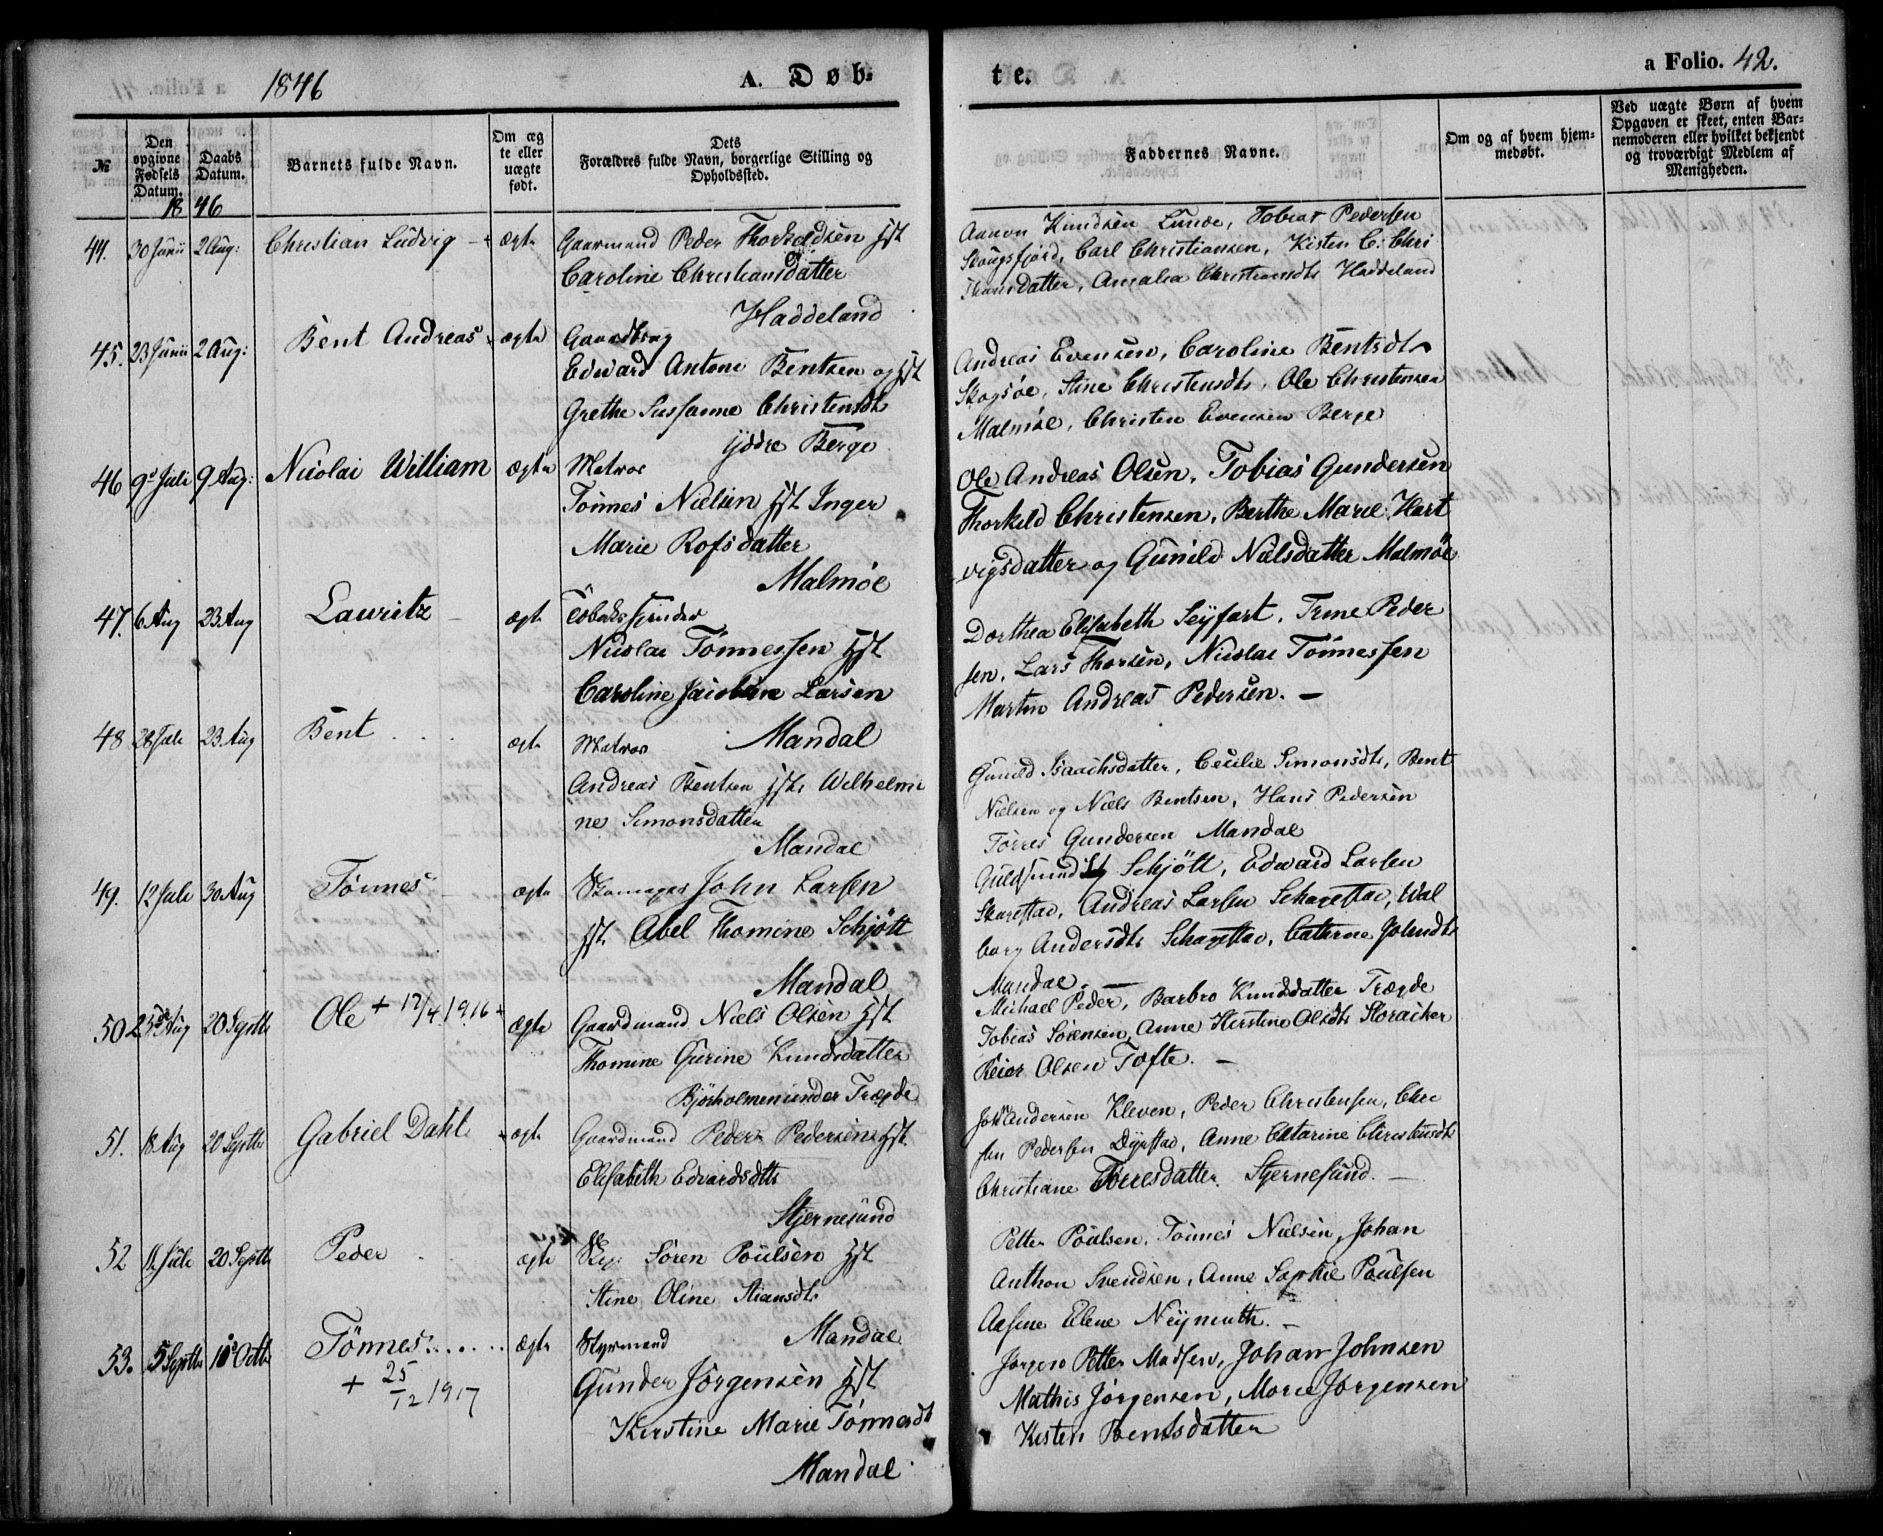 1846
A. Døb-
te.
a Folio. 42.
№
Den opgivne Fødsels Datum.
Daabs Datum.
Barnets fulde Navn.
Om æg te eller uægte født.
Dets Forældres fulde Navn, borgerlige Stilling og Opholdssted.
Faddernes Navne.
Om og af hvem hjem-medøbt.
Ved uægte Børn af hvem Opgaven er skeet, enten Bar-nemoderen eller hvilket bekjendt og troværdigt Medlem af Menigheden.
18 46
44. 30 Junii 2 Aug: Christian Ludvig ægte Gaarmand Peder Thorkeldsen Hst
Caroline Christiansdatter
Haddeland
Aanon Knudsen Lunde, Tobias Pedersen
Skougsfjord, Carl Christiansen, Kisten C: Chri
stiansdatter, Amalia Christiansdtr Haddeland
45. 23 Junii 2 Aug: Bent Andreas ægte Gaardbrug
Edward Antoni Bentsen og Hst
Grethe Susanne Christensdtr
Yddre Berge
Andreas Evensen, Caroline Bentsdtr
Skogsøe, Stine Christensdtr, Ole Christensen
Malmøe, Christen Evensen Berge
46 9de Juli 9 Aug: Nicolai William ægte Matros
Tönnes Nielsen Hst Inger
Marie Rofsdatter
Malmöe
Ole Andreas Olsen, Tobias Gundersen
Thorkild Christensen, Berthe Marie Hart
vigsdatter og Gunild Nielsdatter Malmöe
47. 6 Aug 23 Aug Lauritz ægte
Nicolai Tönnessen Hst
Caroline Jacobine Larsen
Mandal
Dorthea Elisabeth Seyfart, Trine Peder
sen, Lars Thorsen, Nicolai Tönnessen
Martin Andreas Pedersen. —
48 28 Juli 23 Aug Bent ægte Matros
Andreas Bentsen Hst Wilhelmi
ne Simonsdatter
Mandal
Gunild Isaachsdatter, Cecilie Simonsdtr, Bent
Nielsen og Niels Bentsen, Hans Pedersen
Torres Gundersen Mandal
49. 12 Juli 30 Aug Tönnes ægte Skomager John Larsen
Hst Abel Thomine Schjött
Mandal
Schjött, Edward Larsen
Skarestad, Andreas Larsen Scharestad, Wal
borg Andersdtr Scharestad, Catrine Johnsdtr
Mandal. —
50. 23de Aug 20 Septbr Ole + 12/4 1916 ægte Gaardmand Niels Olsen Hst
Thomine Gurine Knudsdatter
Bjørholmen under Trægde
Michael Peder, Barbro Knudsdatter Trægde
Tobias Sørensen, Anne Kirstine Olsdtr Storacker
Reier Olsen Tofte. —
51. 18 Aug 20 Septbr Gabriel Dahl ægte Gaardmand Peder Pedersen Hst
Elisabeth Edvardsdtr
Stjernesund
Andersen Kleven, Peder Christensen, Chri
sten Pedersen Dyrstad, Anne Catarine Christensdtr
Christiane Torresdatter Stjernesund. —
52 11 Juli 20 Septbr Peder ægte Sören Poulsen Hst
Stine Oline Stiansdtr
Mandal
Petter Poulsen, Tönnes Nielsen, Johan
Anthon Svendsen, Anne Sophie Poulsen
Elene Neymuth. —
53. 5 Septbr 10de Octbr Tönnes ægte Styrmand
+ 25/12 1917
Gunder Jørgensen Hst
Kirstine Marie Tönnesdt
Mandal.
Jørgen Petter Madsen, Johan Johnsen
Mathis Jørgensen, Maren Jørgensen
Kisten Bentsdatter